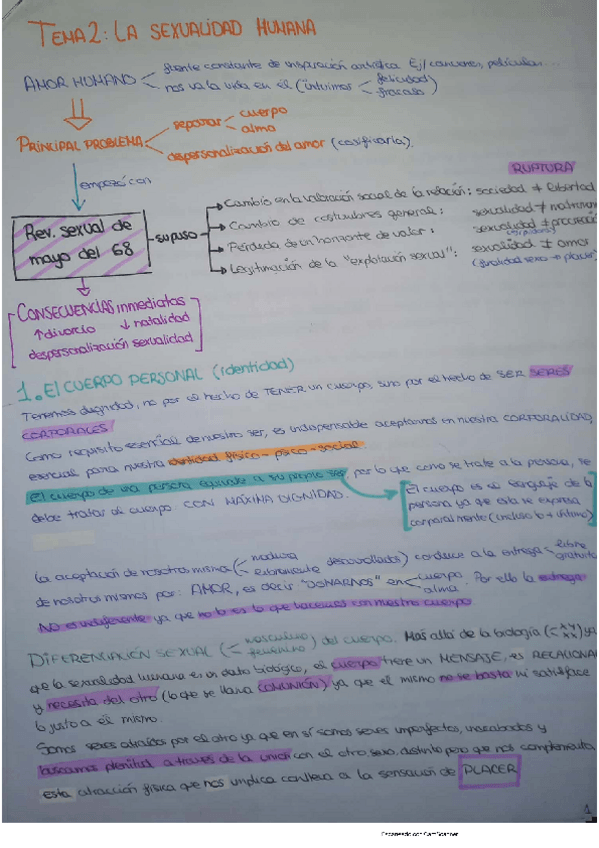 TEMA 2: LA SEXUALIDAD HUMANA
AMOR HUMANO fuente constante de inspiración artística Ej/ canciones, películas...
nos va la vida en él (intuimos felicidad
fracaso)
PRINCIPAL PROBLEMA separar cuerpo
alma
despersonalización del amor (cosificarla).
empezó con
RUPTURA
Rev. sexual de mayo del 68
supuso
Cambio en la valoración social de la relación: sociedad ≠ libertad
Cambio de costumbres general: sexualidad ≠
Pérdida de un horizonte de valor: sexualidad ≠
Legitimación de la "explotación sexual": sexualidad ≠ amor
(finalidad sexo → placer)
CONSECUENCIAS inmediatas
↑ divorcio ↓ natalidad
despersonalización sexualidad
1. El CUERPO PERSONAL (identidad)
Tenemos dignidad, no por el hecho de TENER un cuerpo, sino por el hecho de SER SERES
CORPORALES
Como requisito esencial de nuestro ser, es indispensable aceptarnos en nuestra CORPORALIDAD,
esencial para nuestra identidad físico-psico-social
El cuerpo de una persona equivale a su propio ser, por lo que como se trate a la persona, se
debe tratar al cuerpo CON MÁXIMA DIGNIDAD.
El cuerpo es el lenguaje de la
persona ya que esta se expresa
corporalmente (incluso lo + íntimo)
La aceptación de nosotros mismos (madura
libremente desarrollados) conduce a la entrega libre
gratuita
de nosotros mismos por: AMOR, es decir "DONARNOS" en cuerpo
alma. Por ello la entrega
NO es indiferente ya que no lo es lo que hacemos con nuestro cuerpo
DIFERENCIACIÓN SEXUAL (masculino
femenino) del cuerpo. Más allá de la biología (XX
XY) ya
que la sexualidad humana es un dato biológico, el cuerpo tiene un MENSAJE, es RELACIONAL
y necesita del otro (lo que se llama COMUNIÓN) ya que el mismo no se basta ni satisface
a él mismo.
Somos seres atraídos por el otro ya que en sí somos seres imperfectos, inacabados y
buscamos plenitud a través de la unión con el otro sexo, distinto pero que nos complementa,
esta atracción física que nos implica conlleva a la sensación de PLACER
1
Escaneado con CamScanner